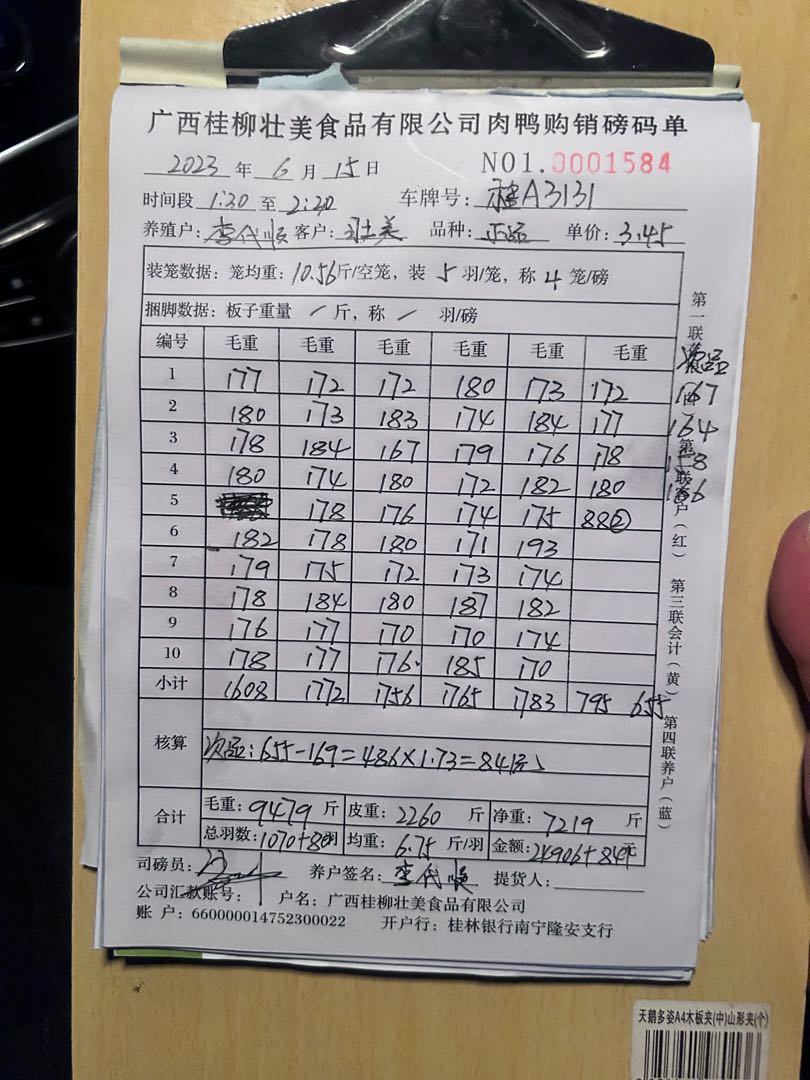 广西桂柳壮美食品有限公司肉鸭购销磅码单
2023 年 6 月 15 日 NO1.0001584
时间段 1:30 至 2:20 车牌号: A3131
养殖户: 李代顺 客户: 壮美 品种: 单价: 3.45
装笼数据: 笼均重: 10.56斤/空笼, 装 5 羽/笼, 称 4 笼/磅
捆脚数据: 板子重量 / 斤, 称 / 羽/磅
编号 毛重 毛重 毛重 毛重 毛重 毛重 次品
1 177 172 172 180 173 172 167
2 180 173 183 174 184 177 164
3 178 184 167 179 176 178 158
4 180 174 180 172 182 180 166
5 178 176 174 175 88②
6 182 178 180 171 193
7 179 175 172 173 174
8 178 184 180 187 182
9 176 177 170 170 174
10 178 177 176. 185 170
小计 1608 1772 1756 1765 1783 795 655
核算 次品: 655-169=486×1.73=841元
合计 毛重: 9479 斤 皮重: 2260 斤 净重: 7219 斤
总羽数: 1070+80羽 均重: 6.75 斤/羽 金额: 24906+841元
司磅员: 养户签名: 李代顺 提货人:
公司汇款账号: 户名: 广西桂柳壮美食品有限公司
账 户: 660000014752300022 开户行: 桂林银行南宁隆安支行
第一联
第二联客户(红)
第三联会计(黄)
第四联养户(蓝)
天鹅多姿A4木板夹(中)山形夹(个)